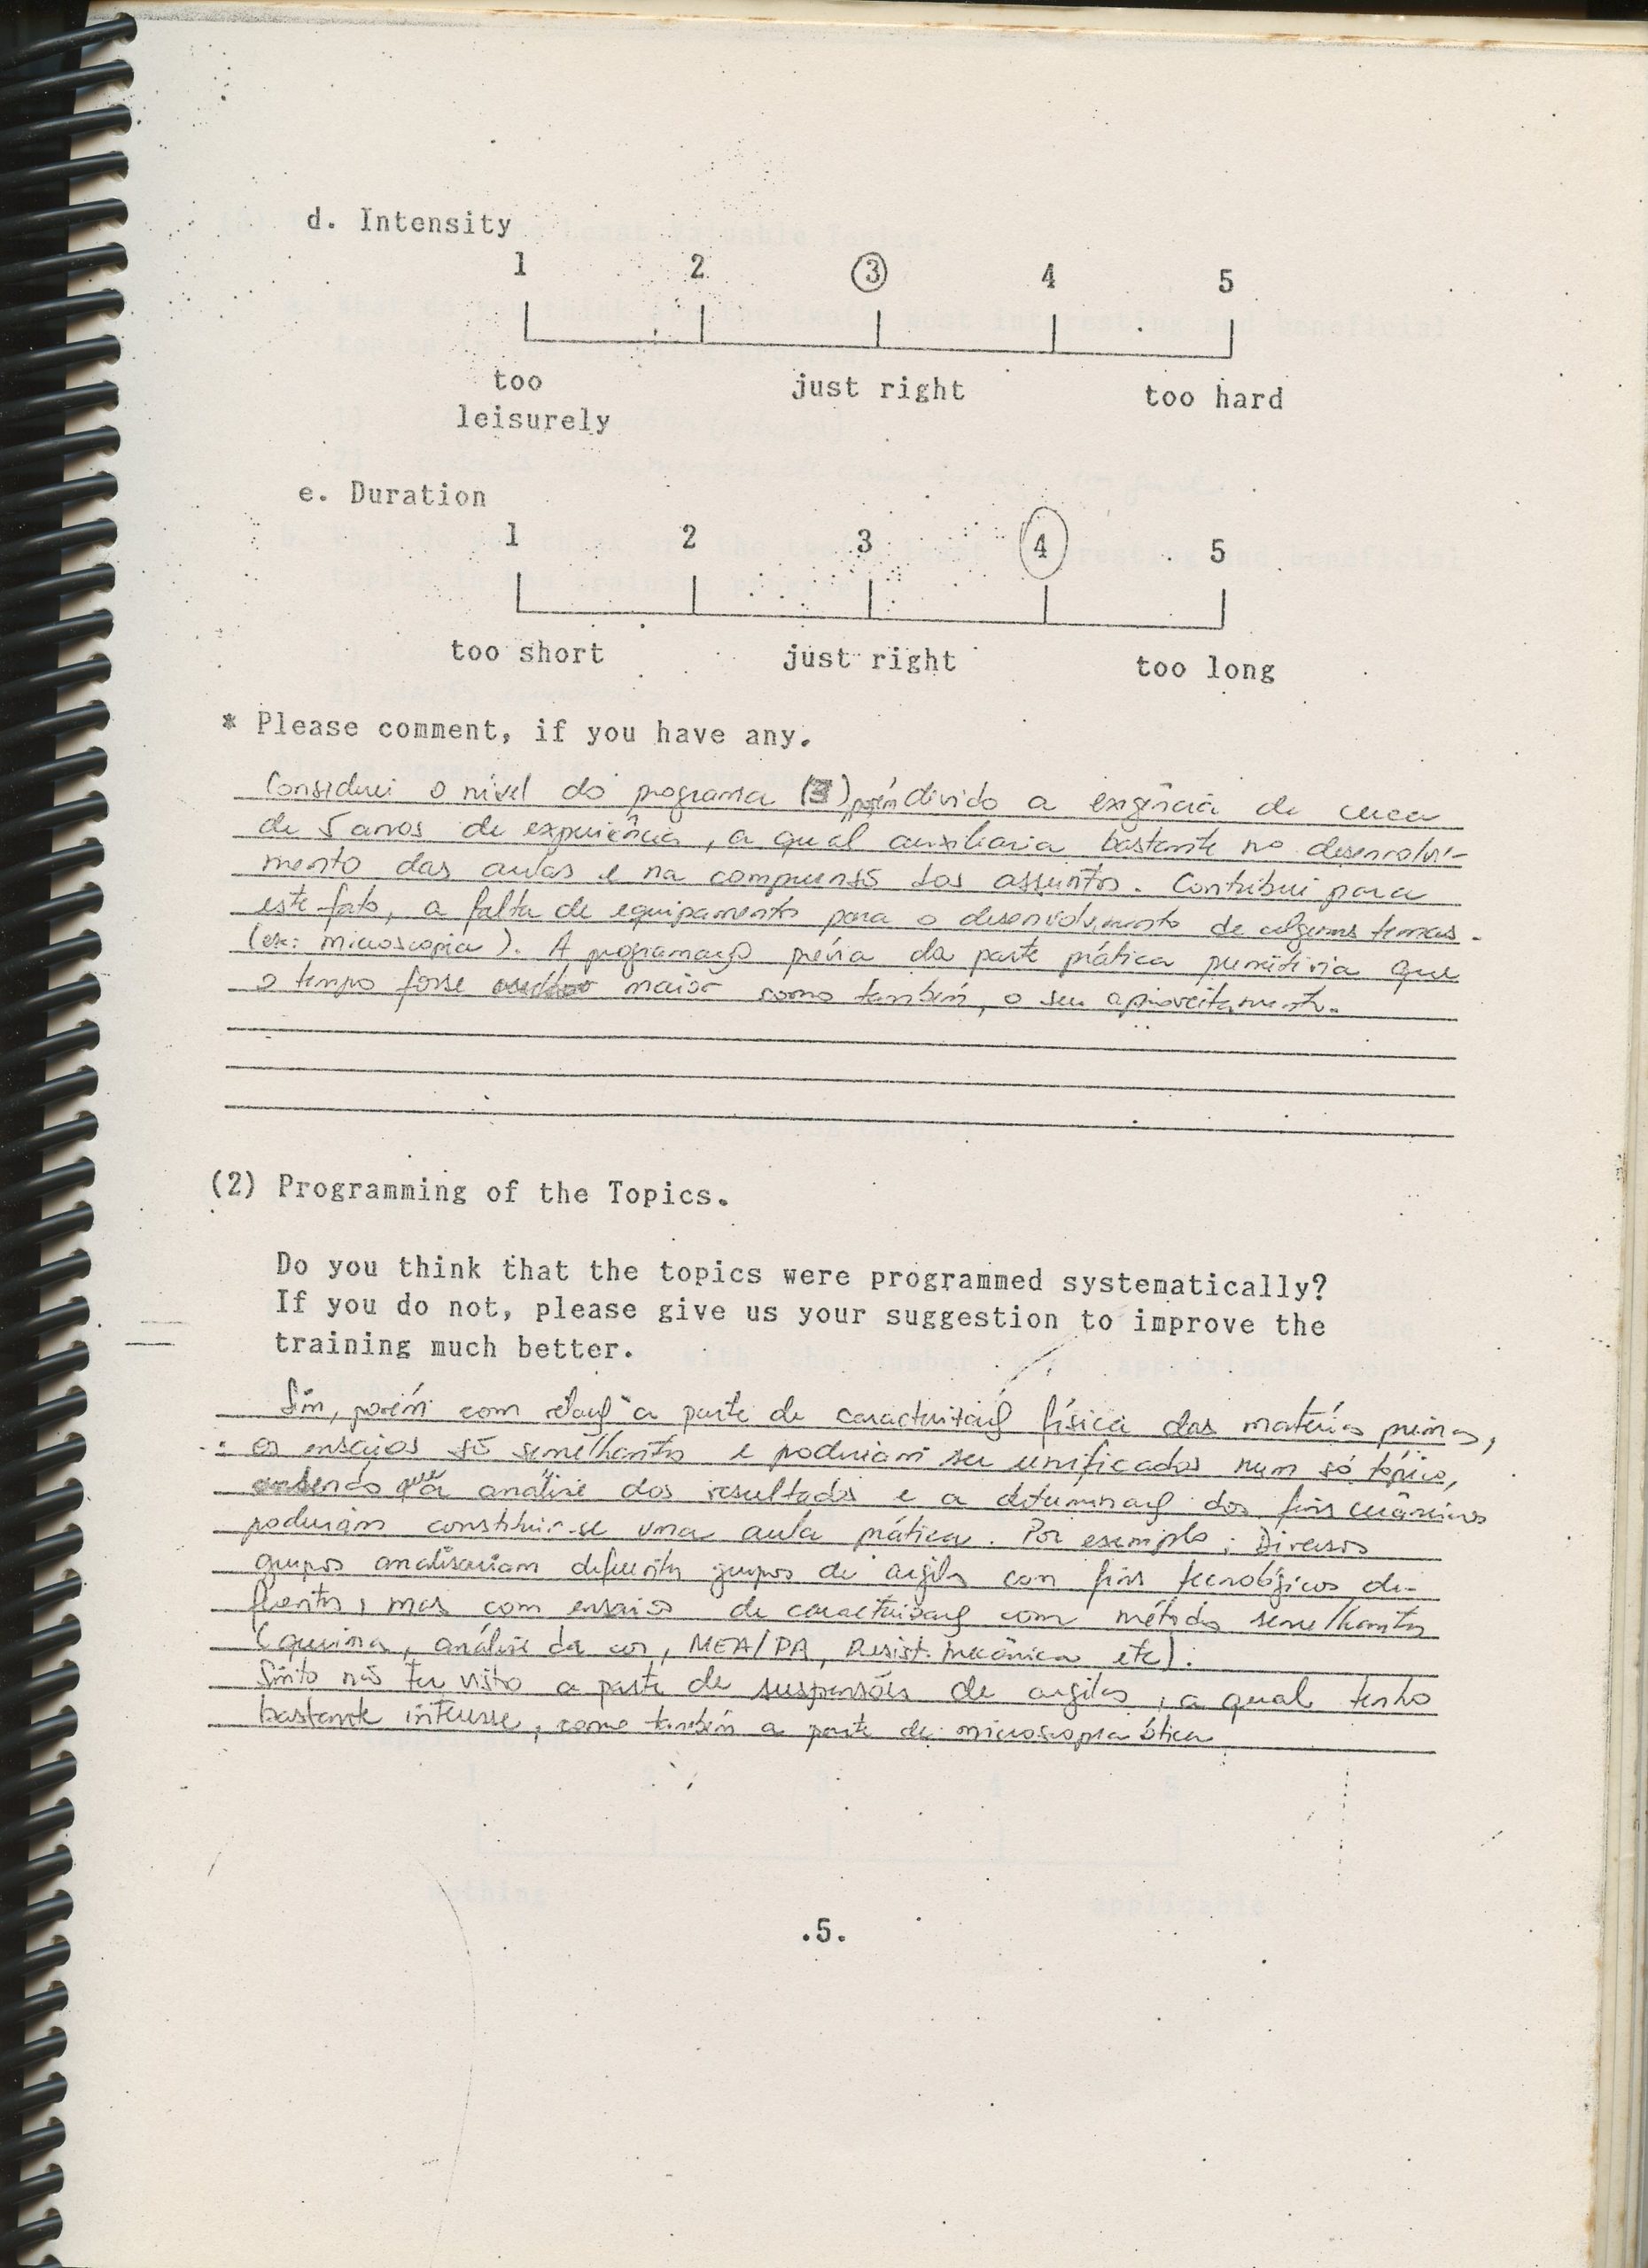 d. Intensity
1 2 3 4 5
too just right too hard
leisurely
e. Duration
1 2 3 4 5
too short just right too long
* Please comment, if you have any.
Considerei o nível do programa (3) porém divido a exigência de cerca
de 5 anos de experiência, a qual auxiliaria bastante no desenvolvi-
mento das aulas e na compreensõ dos assuntos. Contribui para
este fato, a falta de equipamento para o desenvolvimento de alguns temas.
(ex: microscopia). A programaçõ prévia da parte prática permitiria que
o tempo fosse maior como também, o seu aproveitamento.
(2) Programming of the Topics.
Do you think that the topics were programmed systematically?
If you do not, please give us your suggestion to improve the
training much better.
Sim, porém com relaçõ a parte de caracterizaçõ física das matérias primas,
os ensaios sõ semelhantes e poderiam ser unificados num só tópico,
sendo que a análise dos resultados e a determinaçõ dos fins cerâmicos
poderiam constituir-se uma aula prática. Por exemplo: Diversos
grupos analisariam diferentes grupos de argilas com fins tecnológicos di-
ferentes, mas com ensaios de caracterizaçõ com métodos semelhantes
(queima, análise da cor, MEA/PA, Resist. mecânica etc).
Sinto não ter visto a parte de suspensões de argilas, a qual tenho
bastante interesse, como também a parte de microscopia ótica
.5.